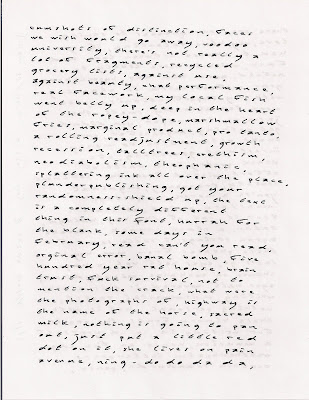 gunshots of distinction, faces
we wish would go away, voodoo
university, there's not really a
lot of fragments, recycled
grocery lists, against use,
against beauty, chat performance,
real facework, my local fish
went belly up, deep in the heart
of the ropey-dope, marshmallow
fries, marginal product, pro tanto,
a rolling readjustment, growth
recession, talltrees, erethism,
neodiabolism, theophanic,
splattering ink all over the place,
plunderpublishing, got your
randomness-shield up, the text
is a completely different
thing in this font, hurrah for
the blank, some days in
february, read can't you read,
orginal error, banal bomb, five
hundred year rat house, brain
trust, fuck survival, not to
mention the crack, what were
the photographs of, highway is
the name of the horse, sacred
milk, nothing is going to pan
out, just put a little red
dot on it, she lives on pain
avenue, ning-do do da da,